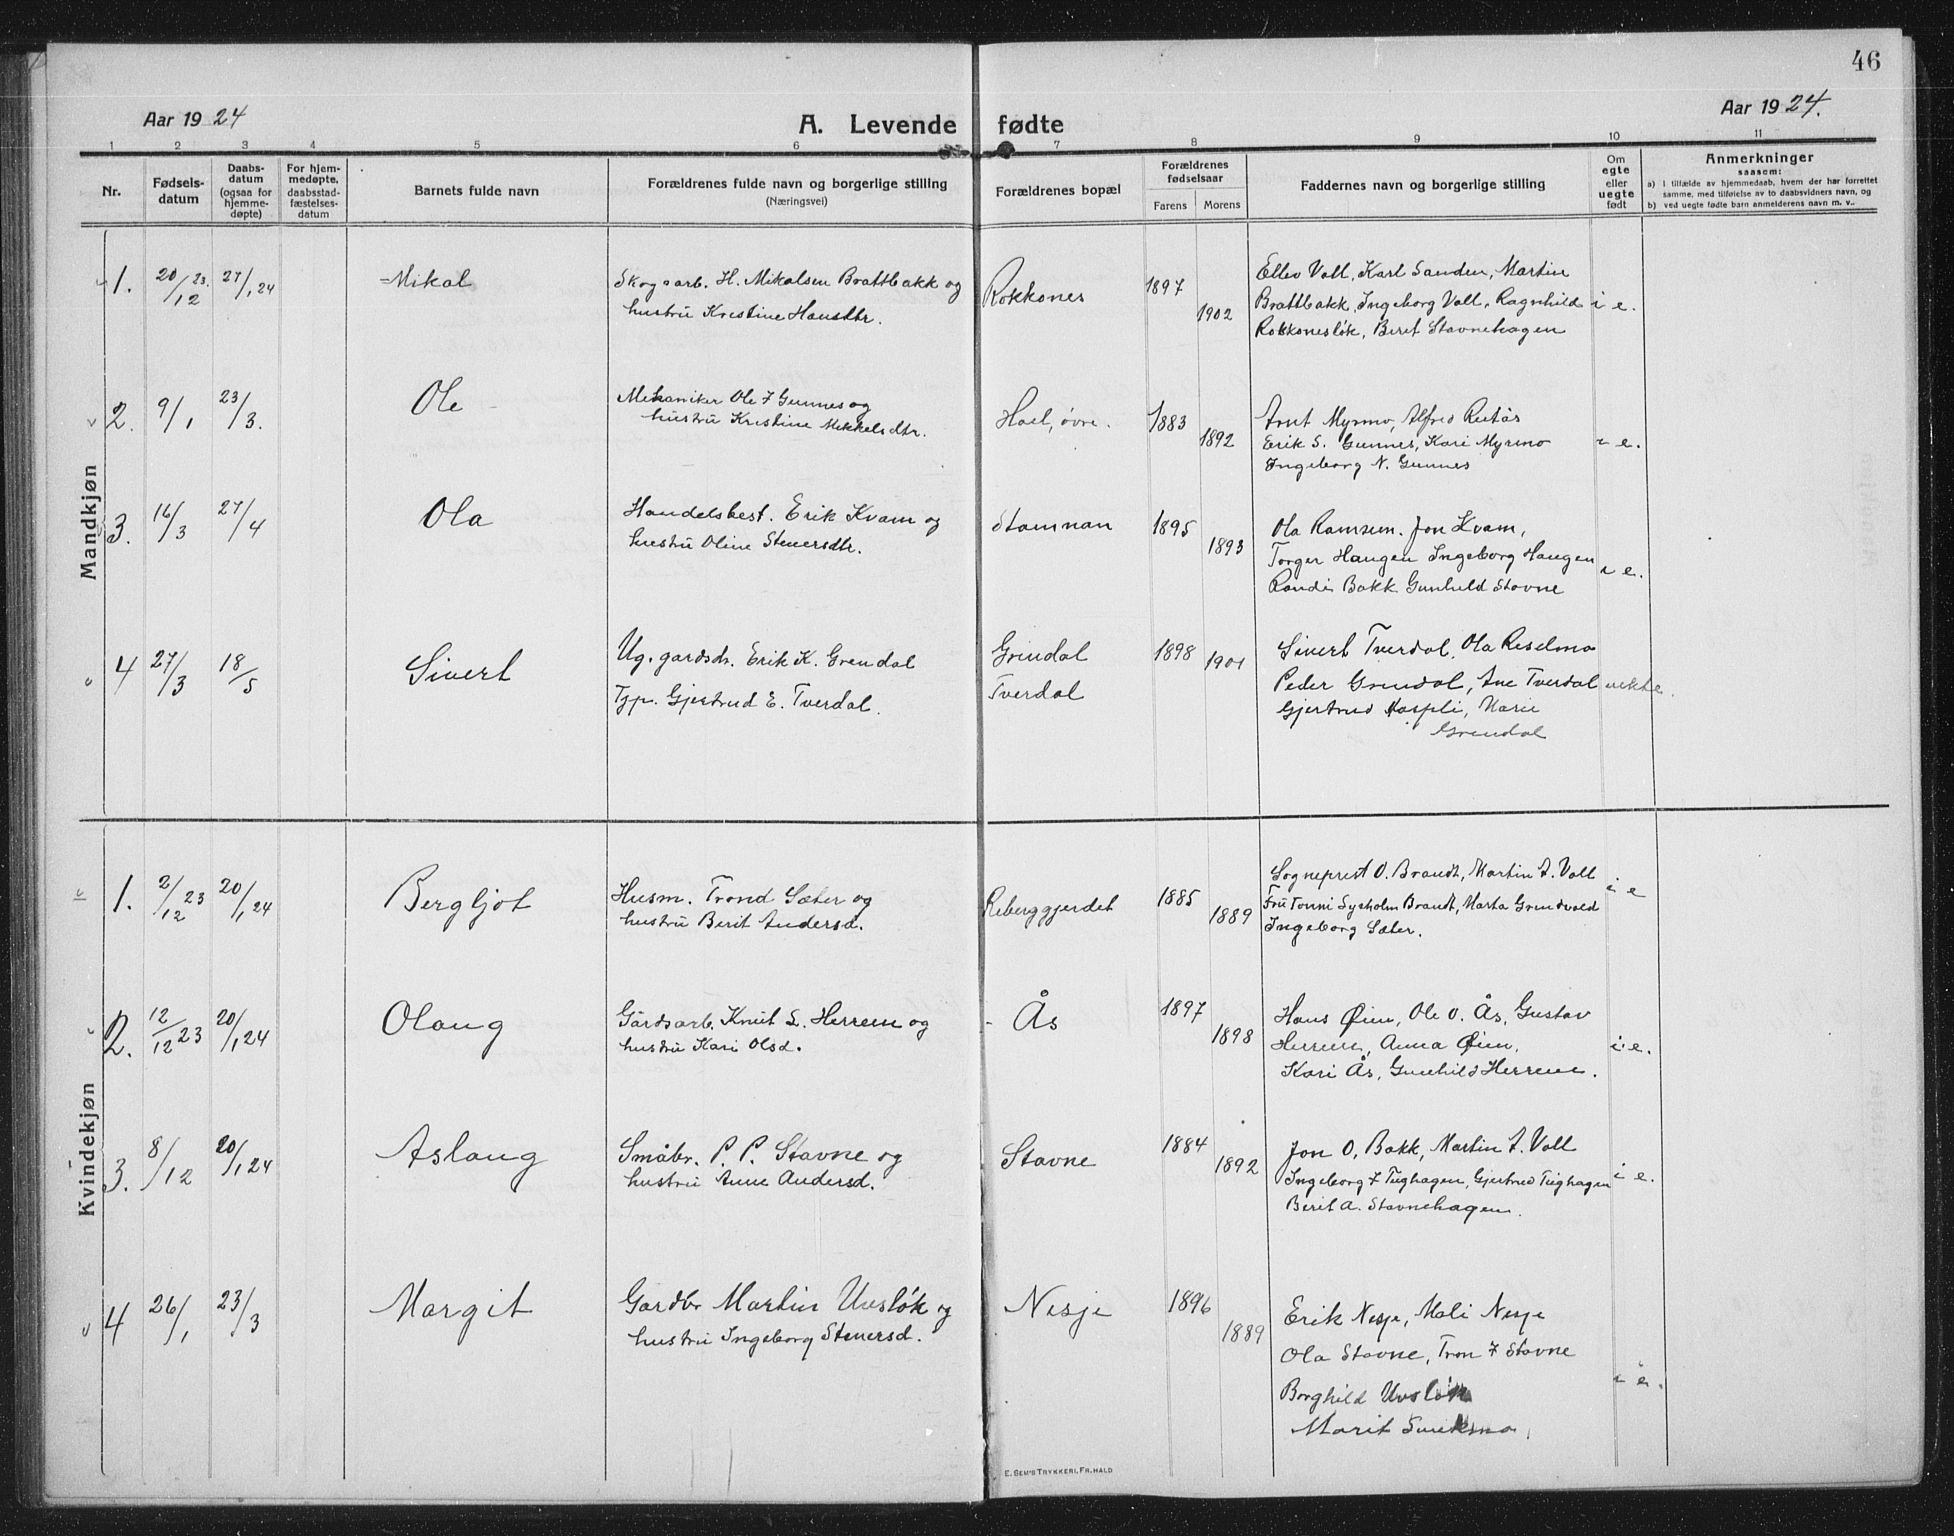 46
Aar 1924
A. Levende fødte
Aar 1924.
1 2 3 4 5 6 7 8 9 10 11
Nr.
Fødsels-
datum
Daabs-
datum
(ogsaa for
hjemme-
døpte)
For hjem-
medøpte,
daabsstad-
fæstelses-
datum
Barnets fulde navn
Forældrenes fulde navn og borgerlige stilling
(Næringsvei)
Forældrenes bopæl
Forældrenes
fødselsaar
Farens Morens
Faddernes navn og borgerlige stilling
Om
egte
eller
uegte
født
Anmerkninger
saasom:
a) I tilfælde av hjemmedaab, hvem der har forrettet
samme, med tilføielse av to daabsvidners navn, og
b) ved uegte fødte barn anmelderens navn m. v..
Mandkjøn
1. 20/12 23. 27/1, 24 Mikal
Skogsarb. H. Mikalsen Brattbakk og
hustru Kristine Hansdtr.
Rokkones 1897 1902
Ellev Voll, Karl Sanden, Martin
Brattbakk, Ingeborg Voll, Ragnhild
Rokkonesløk, Beret Stavnehagen
i e.
2. 9/1 23/3. Ole
Mekaniker Ole F Gunnes og
hustru Kristine Mikkelsdtr.
Hoel, øvre. 1883 1892
Arnt Myrmo, Alfred Reitås
Erik S. Gunnes, Kari Myrmo
Ingeborg N. Gunnes
i e.
3. 16/3 27/4 Ola
Handelsbest. Erik Kvam og
hustru Oline Steuersdtr.
Stamnan 1895 1893
Ola Ramsem. Jon Kvam,
Torger Haugen Ingeborg Haugen
Randi Bakk Gunhild Stavne
i e.
4 27/3 18/5 Sivert
Ug. gardsdr. Erik K. Grendal
Tjp. Gjertrud E. Tverdal.
Grindal
Tverdal
1898 1901
Sivert Tverdal, Ola Reselmo
Peder Grindal, Ane Tverdal
Gjertrud Kaspli, Marie
Grendal
uekte.
Kvindekjøn
1. 2/12 23 20/1, 24 Bergljot
Husm. Trond Sæter og
hustru Berit Andersd.
Reberggjerdet 1885 1889
Sogneprest O. Brandt, Martin A. Voll
Fru Tonni Sysholm Brandt, Marta Grindvold
Ingeborg Sæter.
i e
2. 12/12 23 20/1 24 Olaug
Gårdsarb. Knut L. Herrem og
hustru Kari Olsd.
Ås 1897 1898
Hans Øien, Ole O. Ås, Gustav
Herrem, Anna Øien,
Kari Ås, Gunhild Herrem.
i e.
3. 8/12 20/1, 24 Aslaug
Småbr. P. P. Stavne og
hustru Anne Andersd.
Stavne 1884 1892
Jon O, Bakk, Martin A. Voll
Ingeborg F Tughagen, Gjertrud Tughagen
Berit A. Stavnehagen.
i e.
4 26/1 23/3 Margit
Gardbr Martin Uvsløk og
hustru Ingeborg Steuersd.
Nesje 1896 1889
Erik Nesje, Mali Nesje
Ola Stavne, Tron F Stavne
Borghild Uvsløk
Marit
i e.
E. SEM'S TRYKKERI, FR. HALD